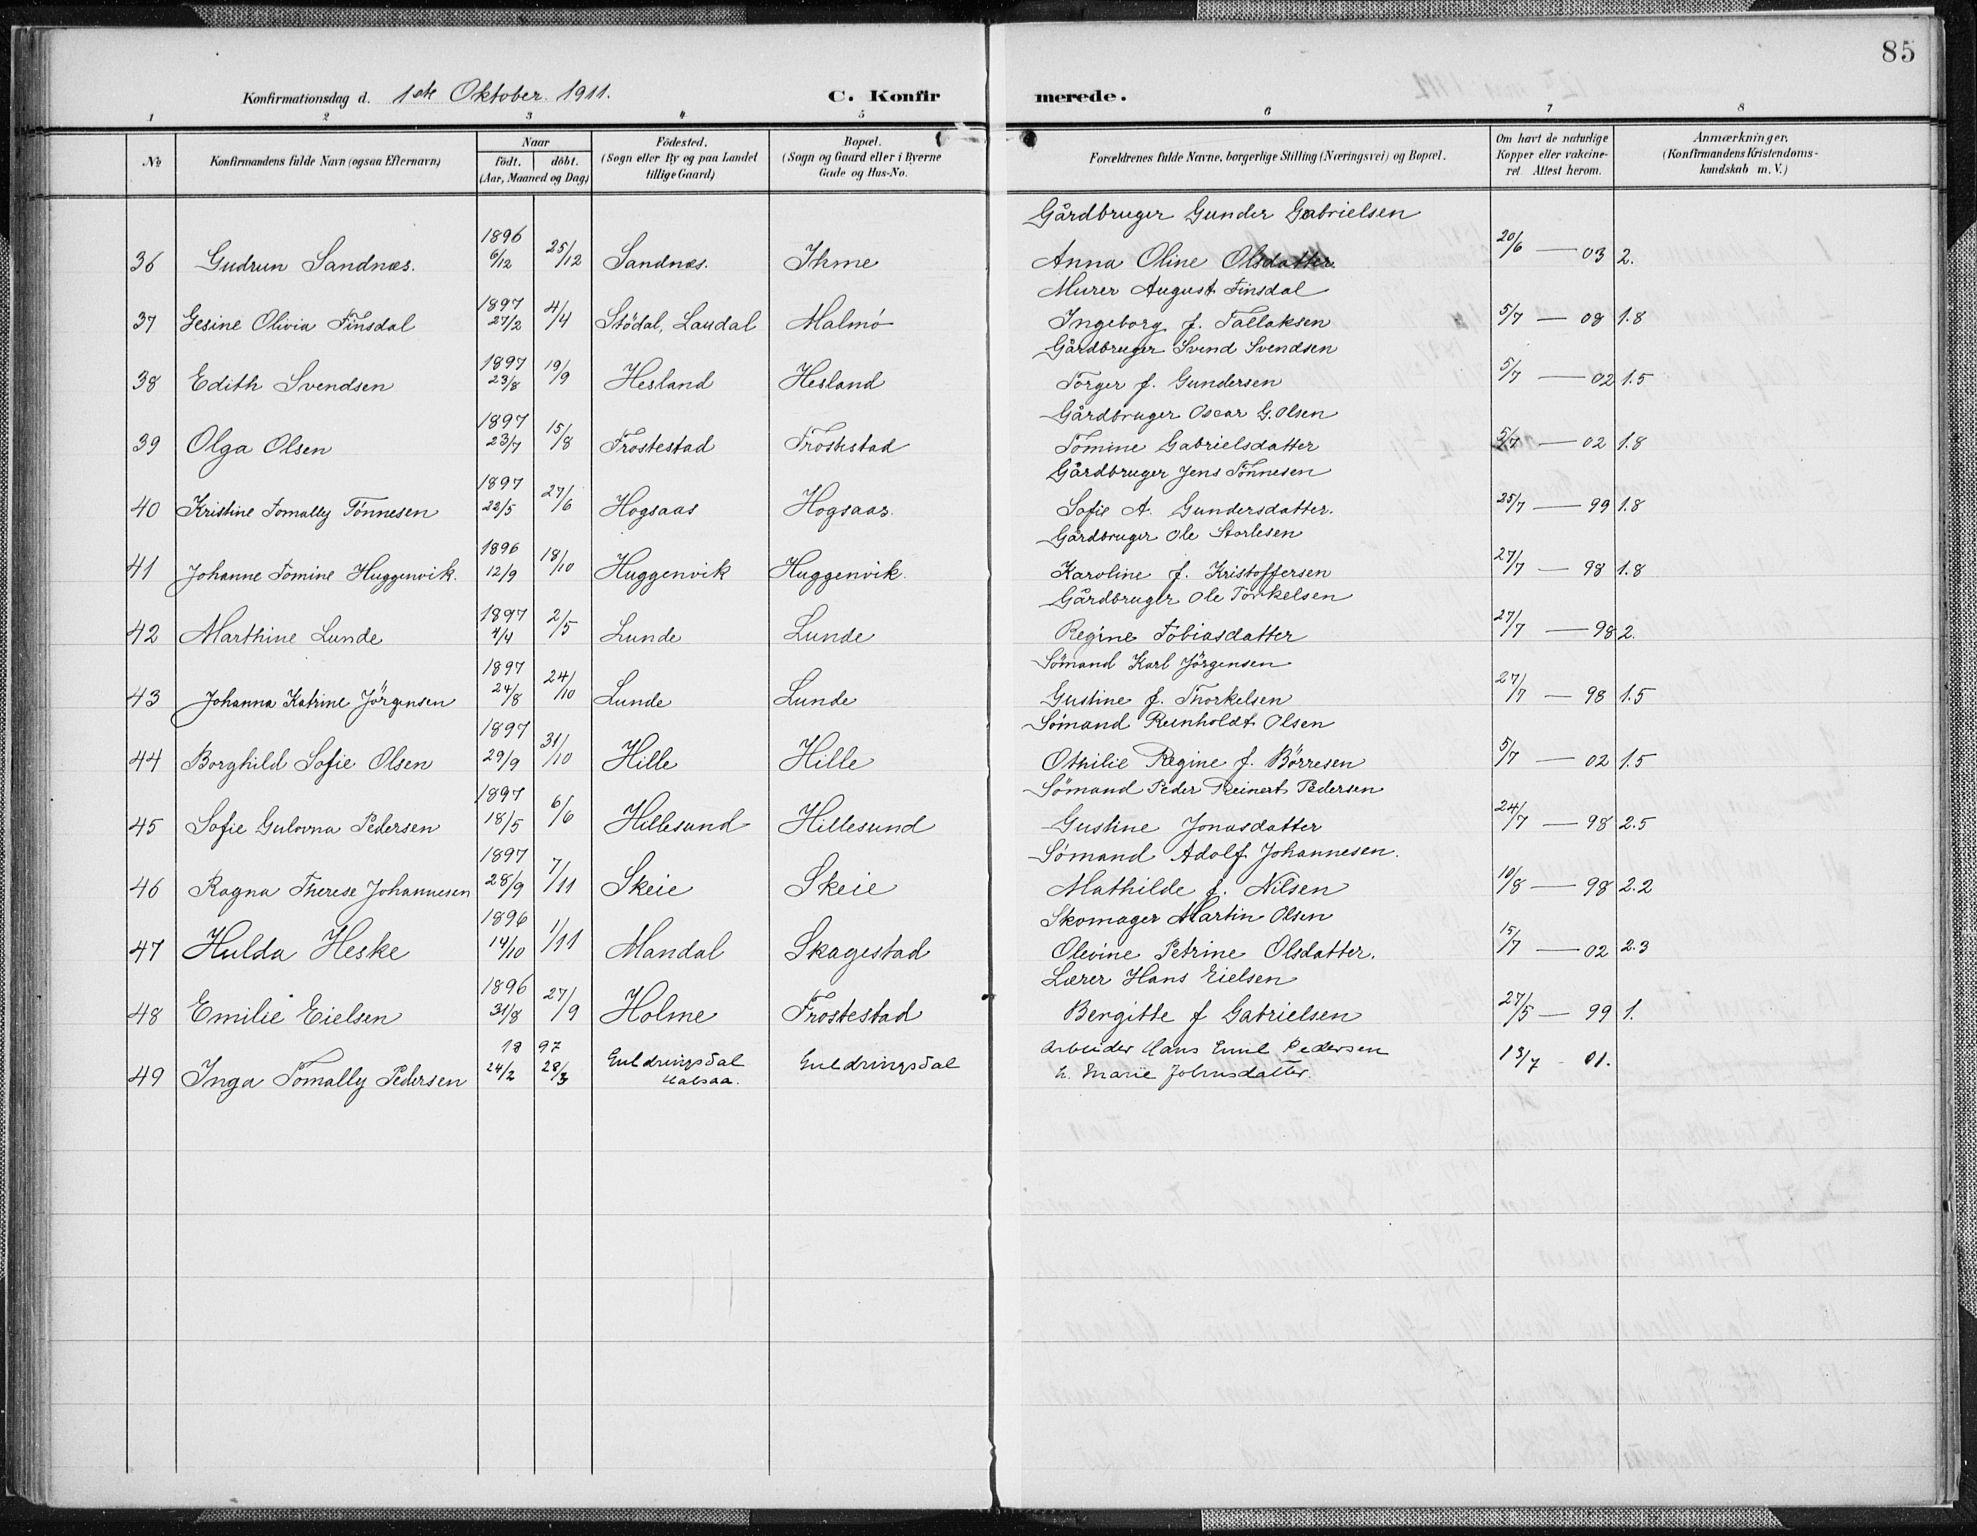 85
Konfirmationsdag d. 1ste Oktober 1911. C. Konfirmerede.
1 2 3 4 5 6 7 8
No Konfirmandens fulde Navn (ogsaa Efternavn) Naar født. døbt. (Aar, Maaned og Dag) Fødested. (Sogn eller By og paa Landet tillige Gaard) Bopæl. (Sogn og Gaard eller i Byerne Gade og Hus-No. Forældrenes fulde Navne, borgerlige Stilling (Næringsvei) og Bopæl. Om havt de naturlige Kopper eller vakcineret. Attest herom. Anmærkninger. (Konfirmandens Kristendomskundskab m. V.)
Gårdbruger Gunder Gabrielsen
36 Gudrun Sandnæs. 1896 6/12 25/12 Sandnæs. Ihme Anna Oline Olsdatter 20/6 — 03 2.
Murer August Finsdal
37 Gesine Olivia Finsdal 1897 27/2 4/4 Stödal, Laudal Malmö Ingeborg f. Tallaksen 5/7 — 08 1.8
Gårdbruger Svend Svendsen
38 Edith Svendsen 1897 23/8 19/9 Hesland Hesland Torger f. Gundersen 5/7 — 02 1.5
Gårdbruger Oscar G. Olsen
39 Olga Olsen 1897 23/7 15/8 Frostestad Frostestad Tomine Gabrielsdatter 5/7 — 02 1.8
Gårdbruger Jens Tönnesen
40 Kristine Tomally Tönnesen 1897 22/5 27/6 Hogsaas Hogsaas. Sofie A. Gundersdatter. 25/7 — 99 1.8
Gårdbruger Ole Storlesen
41 Johanne Tomine Huggenvik. 1896 12/9 18/10 Huggenvik Huggenvik. Karoline f. Kristoffersen 27/7 — 98 1.8
Gårdbruger Ole Torkelsen
42 Marthine Lunde 1897 4/4 2/5 Lunde Lunde Regine Tobiasdatter 27/7 — 98 2.
Sömand Karl Jörgensen
43 Johanna Katrine Jörgensen 1897 24/8 24/10 Lunde Lunde Gustine f. Thorkelsen 27/7 — 98 1.5
Sömand Reinholdt Olsen
44 Borghild Sofie Olsen 1897 29/9 31/10 Hille Hille Othilie Regine f. Börresen 5/7 — 02 1.5
Sömand Peder Reinert Pedersen
45 Sofie Gulovna Pedersen 1897 18/5 6/6 Hillesund Hillesund Gustine Jonasdatter 24/7 — 98 2.5
Sömand Adolf Johannesen.
46 Ragna Therese Johannesen 1897 28/9 7/11 Skeie Skeie Mathilde f. Nilsen 10/8 — 98 2.2
Skomager Martin Olsen
47 Hulda Heske 1896 14/10 1/11 Mandal Skagestad Olevine Petrine Olsdatter. 15/7 — 02 2.3
Lærer Hans Eielsen
48 Emilie Eielsen 1896 31/8 27/9 Holme Frostestad Bergitte f Gabrielsen 27/5 — 99 1.
Arbeider Hans Emil Pedersen
49 Inga Tomally Pedersen 1897 24/2 28/3 Guldringsdal Halsaa. Guldringsdal h. Marie Johnsdatter. 13/7 - 01.